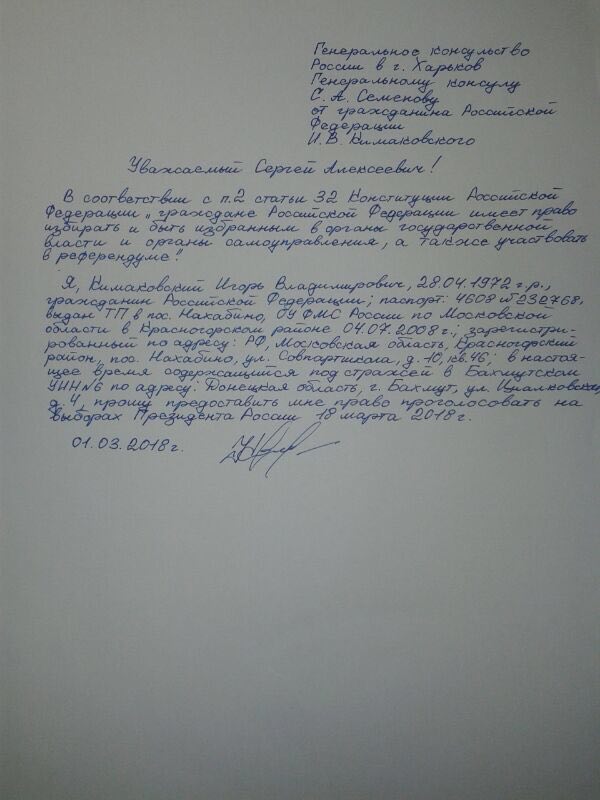 Генеральное консульство
России в г. Харьков
Генеральному консулу
С. А. Семенову
от гражданина Российской
Федерации
И. В. Кимаковского
Уважаемый Сергей Алексеевич!
В соответствии с п.2 статьи 32 Конституции Российской
Федерации „граждане Российской Федерации имеет право
избирать и быть избранным в органы государственной
власти и органы самоуправления, а также участвовать
в референдуме".
Я, Кимаковский Игорь Владимирович, 28.04.1972 г.р.,
гражданин Российской Федерации; паспорт: 4608 № 232768,
выдан ТП в пос. Нахабино, ОУ ФМС России по Московской
области в Красногорском районе 04.07.2008 г.; зарегистри-
рованный по адресу: РФ, Московская область, Красногорский
район, пос. Нахабино, ул. Совпартшкола, д. 10, кв. 46; в настоя-
щее время содержащийся под стражей в Бахмутском
УИН №6 по адресу: Донецкая область, г. Бахмут, ул.
д. 4, прошу предоставить мне право проголосовать на
выборах Президента России 18 марта 2018 г.
01.03.2018 г.